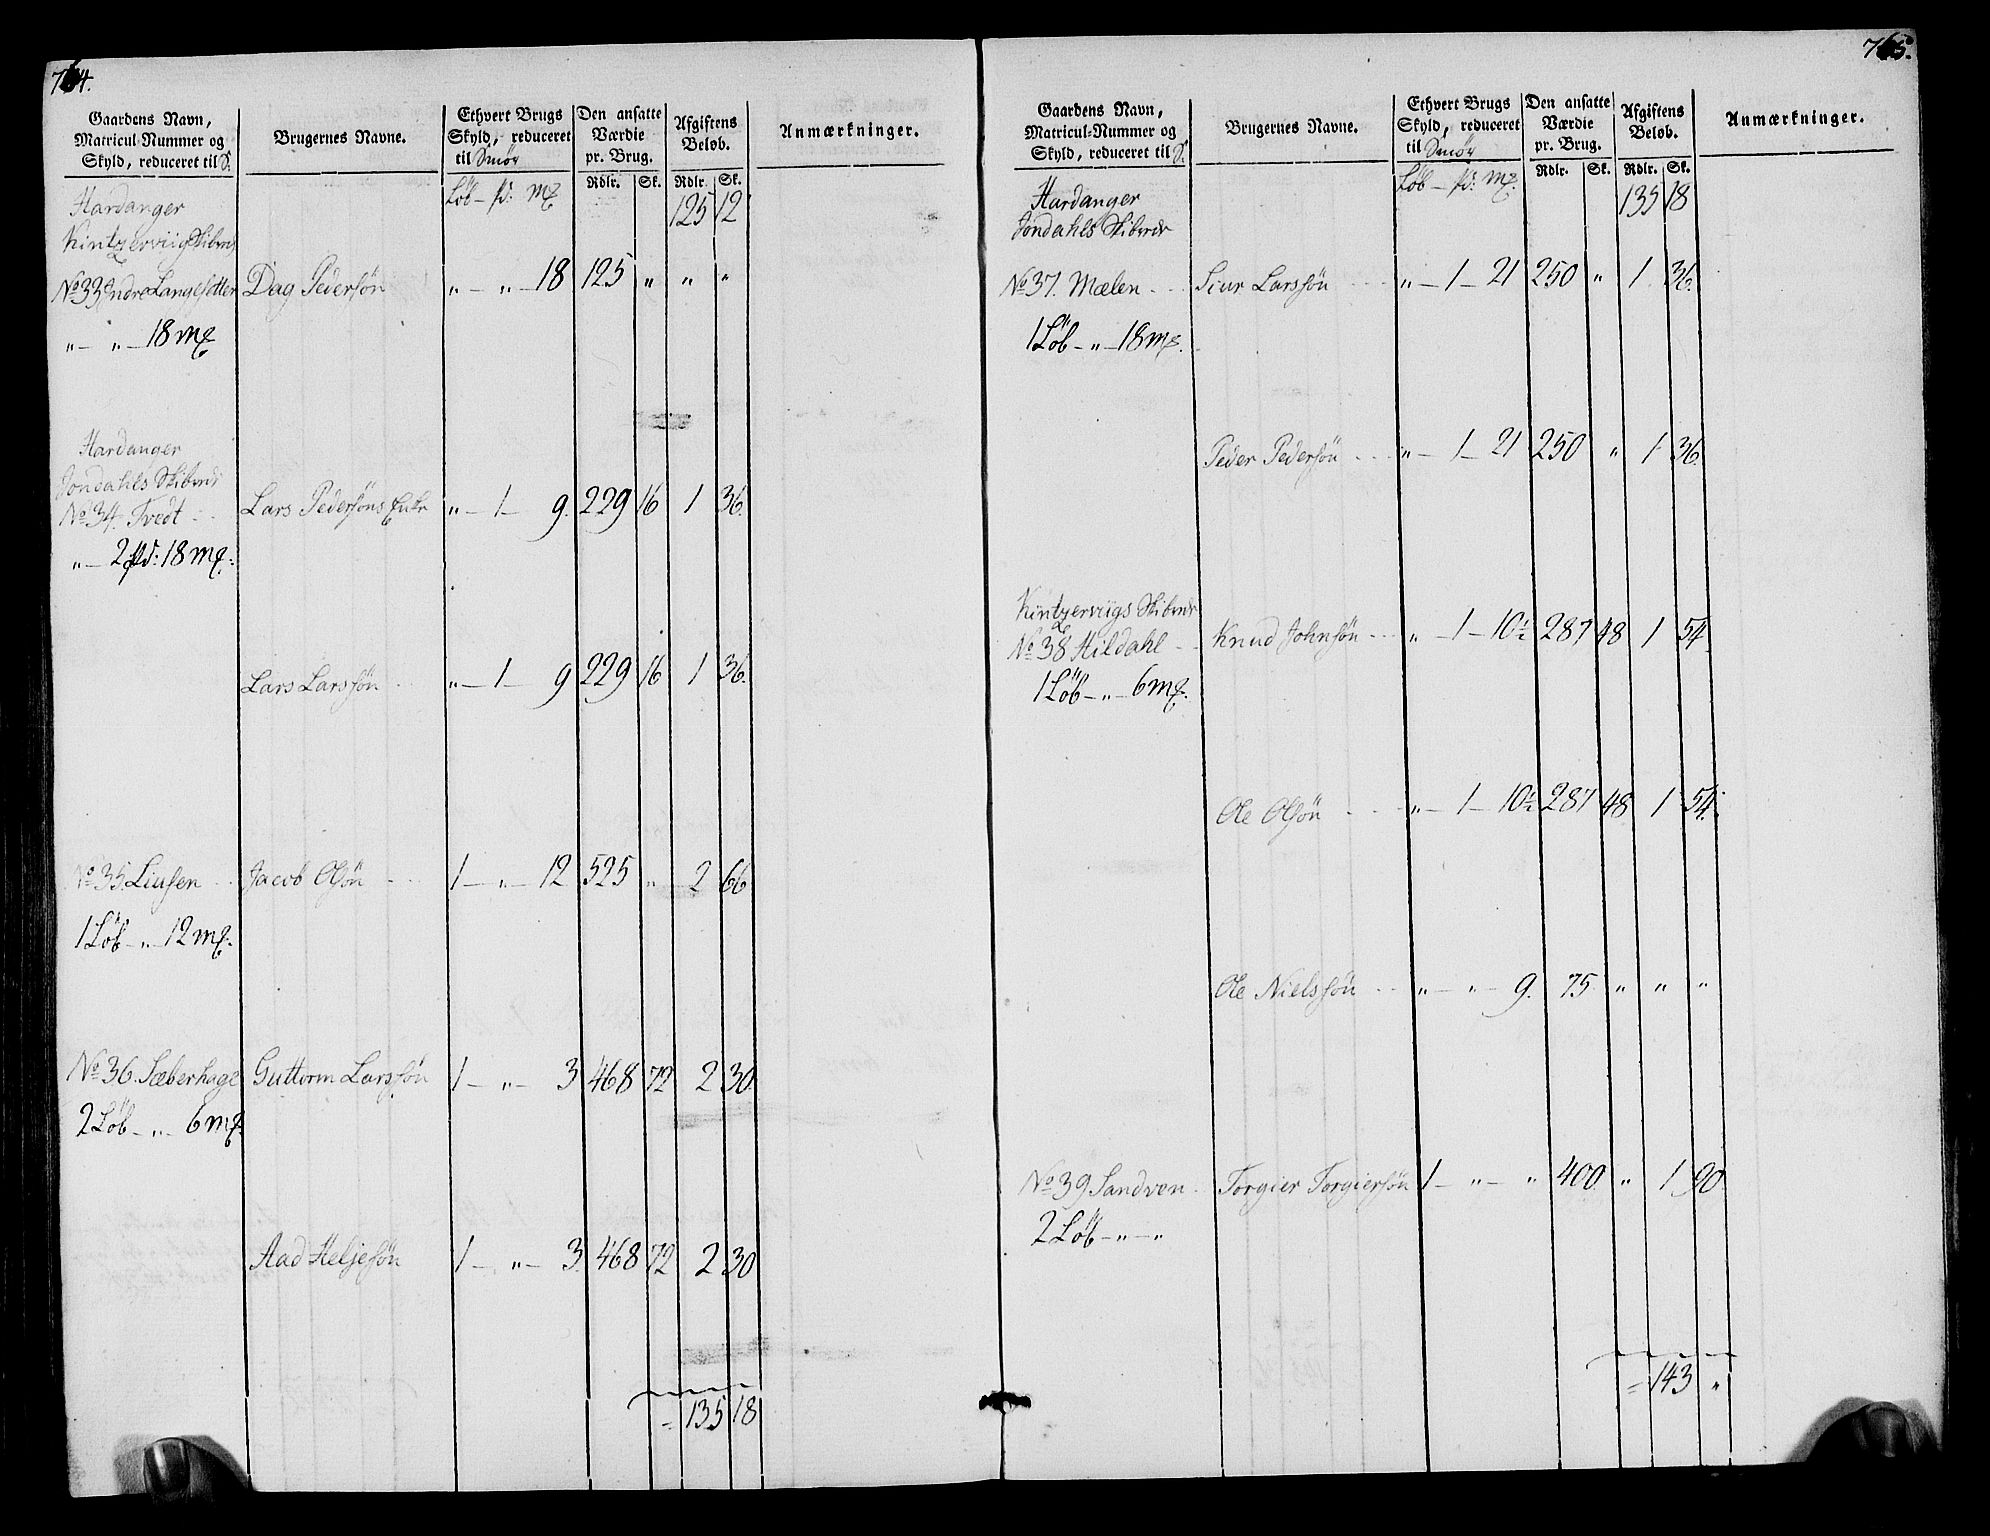 764.
Gaardens Navn, Matricul-Nummer og Skyld, reduceret til S. | Brugernes Navne. | Ethvert Brugs Skyld, reduceret til Smør | Den ansatte Værdie pr. Brug. | Afgiftens Beløb. | Anmærkninger.
Løb – pd: mg | Rdlr. | Sk. | Rdlr. | Sk.
Hardanger 125 12
Kintzerviigs Skibrede
No 33 Indre Langesetter Dag Pedersön „ – „ – 18 125 „ „ „
„ – „ – 18 mg
Hardanger
Jondahls Skibrede
No 34. Tvedt Lars Pedersöns Enke „ – 1 – 9. 229 16 1 36.
„ – 2 pd: 18 mg:
Lars Larssön „ – 1 – 9 229 16 1 36.
No 35. Liusen Jacob Olsön 1 – „ – 12 525 „ 2 66
1 Löb – „ – 12 mg.
No 36. Sæberhage Guttorm Larssön 1 – „ – 3 468 72 2 30.
2 Löb – „ – 6 mg.
Aad Heljesön 1 – „ – 3. 468 72 2 30
= 135 18
765.
Gaardens Navn, Matricul-Nummer og Skyld, reduceret til S. | Brugernes Navne. | Ethvert Brugs Skyld, reduceret til Smør | Den ansatte Værdie pr. Brug. | Afgiftens Beløb. | Anmærkninger.
Løb – pd: mg. | Rdlr. | Sk. | Rdlr. | Sk.
Hardanger 135 18
Jondahls Skibrede
No 37. Mælen Siur Larssön „ – 1 – 21 250 „ 1 36.
1 Löb – „ – 18 mg.
Peder Pedersön „ – 1 – 21 250 „ 1 36.
Kintzerviigs Skibrede
No 38 Hildahl Knud Johnsön „ – 1 – 10½ 287 48 1 54.
1 Löb – „ – 6 mg.
Ole Olsön „ – 1 – 10½ 287 48 1 54.
Ole Nielssön „ – „ – 9. 75 „ „ „
No 39 Sandven Torgier Torgiersön 1 – „ – „ 400 „ 1 90
2 Löb – „ – „
= 143 „